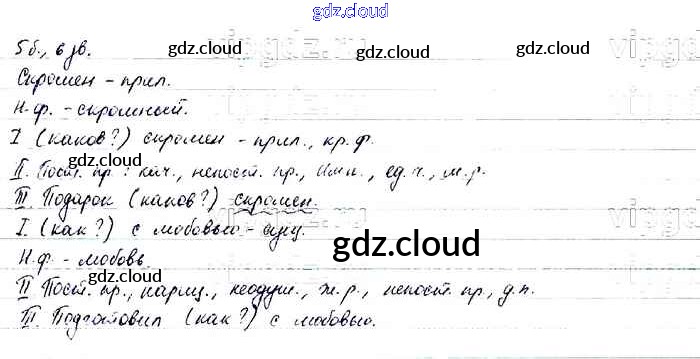 gdz.cloud
5б., 6 зв.
gdz.cloud
gdz.cloud
Скромен - прил.
Н.ф. - скромный.
gdz.cloud
I (каков?) скромен - прил., кр. ф.
gdz.cloud
II. Пост. пр.: кач., непост. пр., ед. ч., м. р.
III. Подарок (каков?) скромен.
vipgdz
I (как?) с любовью - сущ.
gdz.cloud
Н.ф. - любовь.
gdz.cloud
II Пост. пр., нариц., неодуш., ж. р., непост. пр., д. п.
III. Подготовил (как?) с любовью.